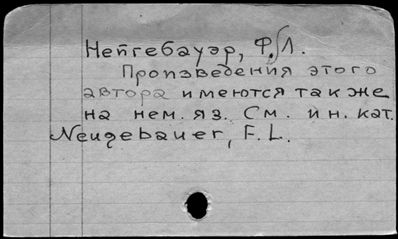 Нейгебауэр, Ф.Л.
Произведения этого
автора имеются также
на нем. яз. См. ин. кат.
Neugebauer, F. L.